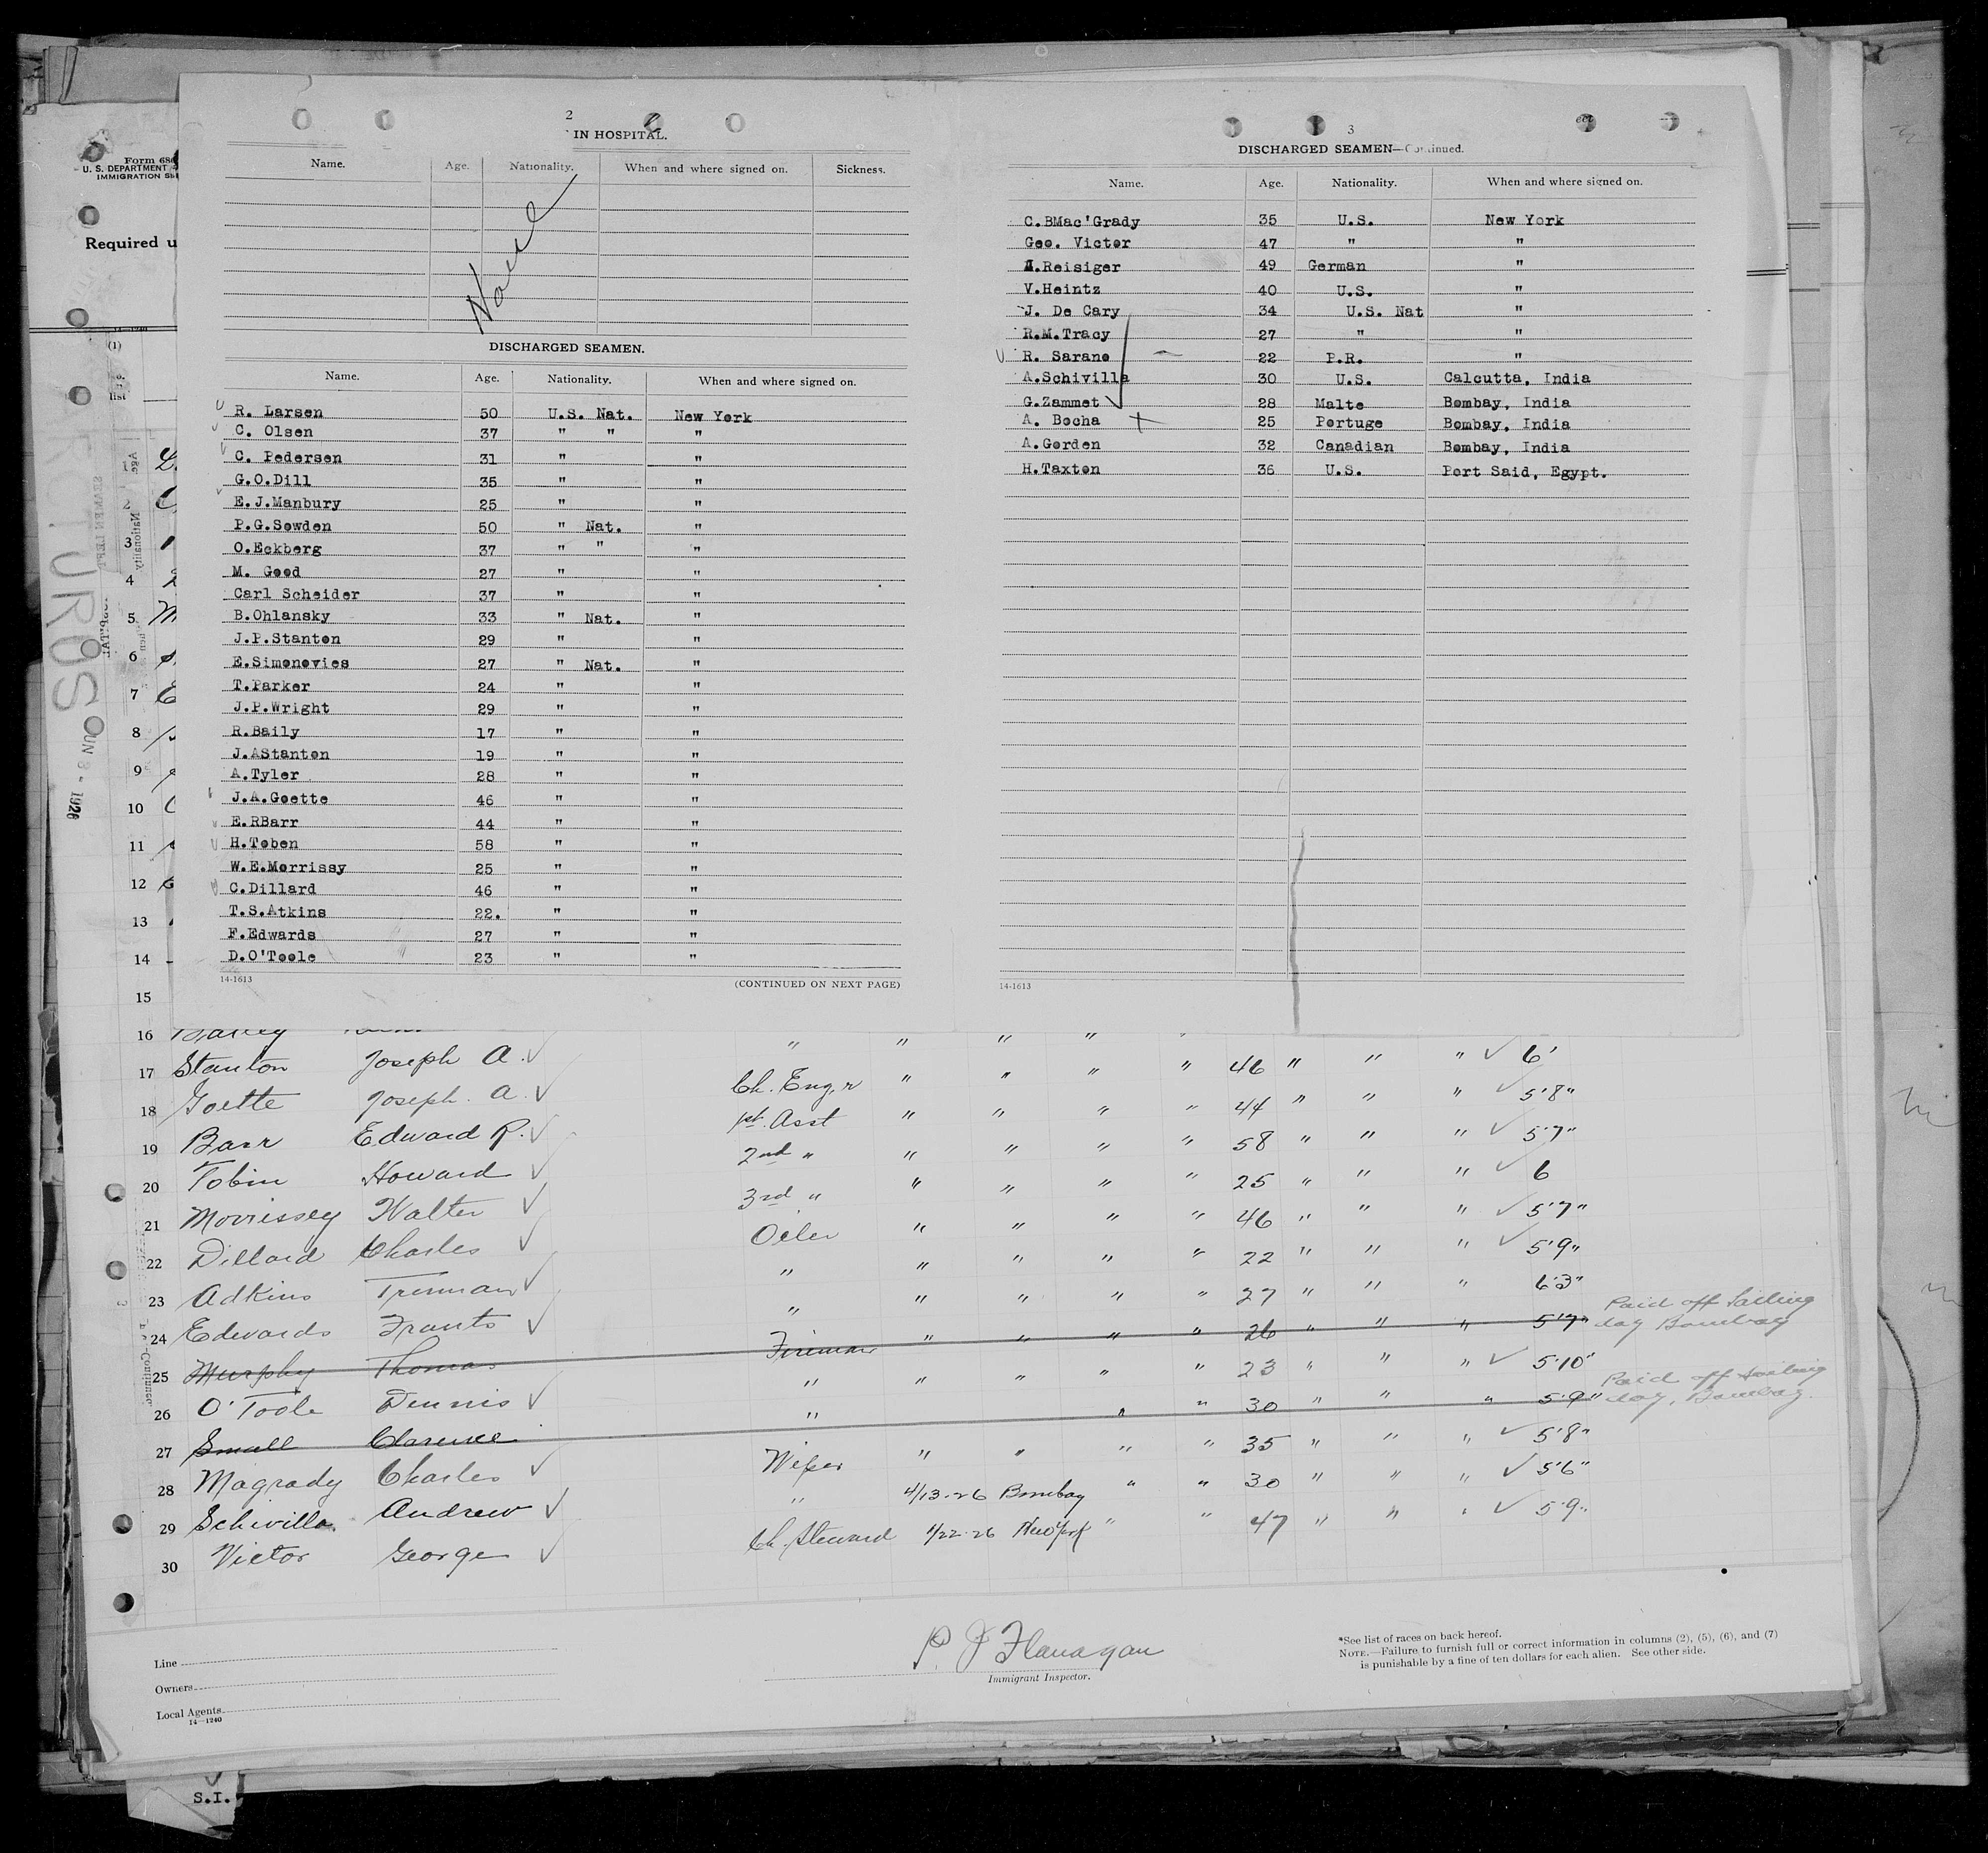 Form 686
U. S. DEPARTMENT
IMMIGRATION SE
Required u
(1)
list
3
4
5
6
7
8
9
10
11
12
13
14
15
UROS
JUN 8 - 1926
2
IN HOSPITAL.
Name. Age. Nationality. When and where signed on. Sickness.
None
DISCHARGED SEAMEN.
Name. Age. Nationality. When and where signed on.
R. Larsen 50 U.S. Nat. New York
C. Olsen 37 " " "
C. Pedersen 31 " "
G.O.Dill 35 " "
E.J.Manbury 25 " "
P.G.Sowden 50 " Nat. "
O.Eckberg 37 " " "
M. Good 27 " "
Carl Scheider 37 " "
B.Ohlansky 33 " Nat. "
J.P.Stanton 29 " "
E.Simonovies 27 " Nat. "
T.Parker 24 " "
J.P.Wright 29 " "
R.Baily 17 " "
J.AStanton 19 " "
A.Tyler 28 " "
J.A.Goette 46 " "
E.RBarr 44 " "
H.Toben 58 " "
W.E.Morrissy 25 " "
C.Dillard 46 " "
T.S.Atkins 22. " "
F.Edwards 27 " "
D.O'Toole 23 " "
14-1613 (CONTINUED ON NEXT PAGE)
3
DISCHARGED SEAMEN—Continued.
Name. Age. Nationality. When and where signed on.
C.BMac'Grady 35 U.S. New York
Geo. Victor 47 " "
A.Reisiger 49 German "
V.Heintz 40 U.S. "
J. De Cary 34 U.S. Nat "
R.M.Tracy 27 " "
R. Sarano 22 P.R. "
A.Schivilla 30 U.S. Calcutta, India
G.Zammet 28 Malte Bombay, India
A. Bocha 25 Portuge Bombay, India
A.Gorden 32 Canadian Bombay, India
H.Taxton 36 U.S. Port Said, Egypt.
14-1613
16 Bailey
17 Stanton Joseph A. " " " " " 46 " " " 6'
18 Goette Joseph. A. Ch. Eng.r " " " " 44 " " " 5'8"
19 Barr Edward R. 1st. Asst " " " " 58 " " " 5'7"
20 Tobin Howard 2nd " " " " " 25 " " " 6
21 Morrissey Walter 3rd " " " " " 46 " " " 5'7"
22 Dillard Charles Oiler " " " " 22 " " " 5'9"
23 Adkins Truman " " " " " 27 " " " 6'3"
24 Edwards Frants " " " " " 26 " " " 5'7" Paid off Sailing day Bombay
25 Murphy Thomas Fireman " " " " 23 " " " 5'10"
26 O'Toole Dennis " " " 30 " " " 5'9" Paid off Sailing day, Bombay.
27 Small Clarence " " " " " 35 " " " 5'8"
28 Magrady Charles Wiper " " 30 " " " 5'6"
29 Schivilla Andrew " 4/13-26 Bombay " " 47 " " " 5'9"
30 Victor George Ch. Steward 1/22-26 New York
Line
Owners
Local Agents
14—1240
P. J Flanagan
Immigrant Inspector.
*See list of races on back hereof.
NOTE.—Failure to furnish full or correct information in columns (2), (5), (6), and (7)
is punishable by a fine of ten dollars for each alien. See other side.
S.I.